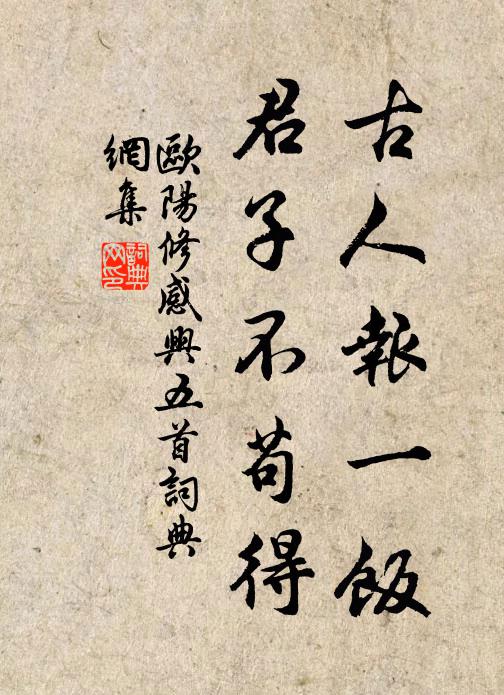 古人報一飯
君子不苟得
歐陽修感興五首詞典
網集
詞典
网印